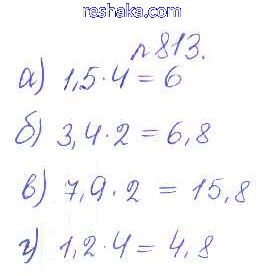 www.reshaka.com
№813.
а) 1,5·4 = 6
б) 3,4·2 = 6,8
в) 7,9·2 = 15,8
г) 1,2·4 = 4,8